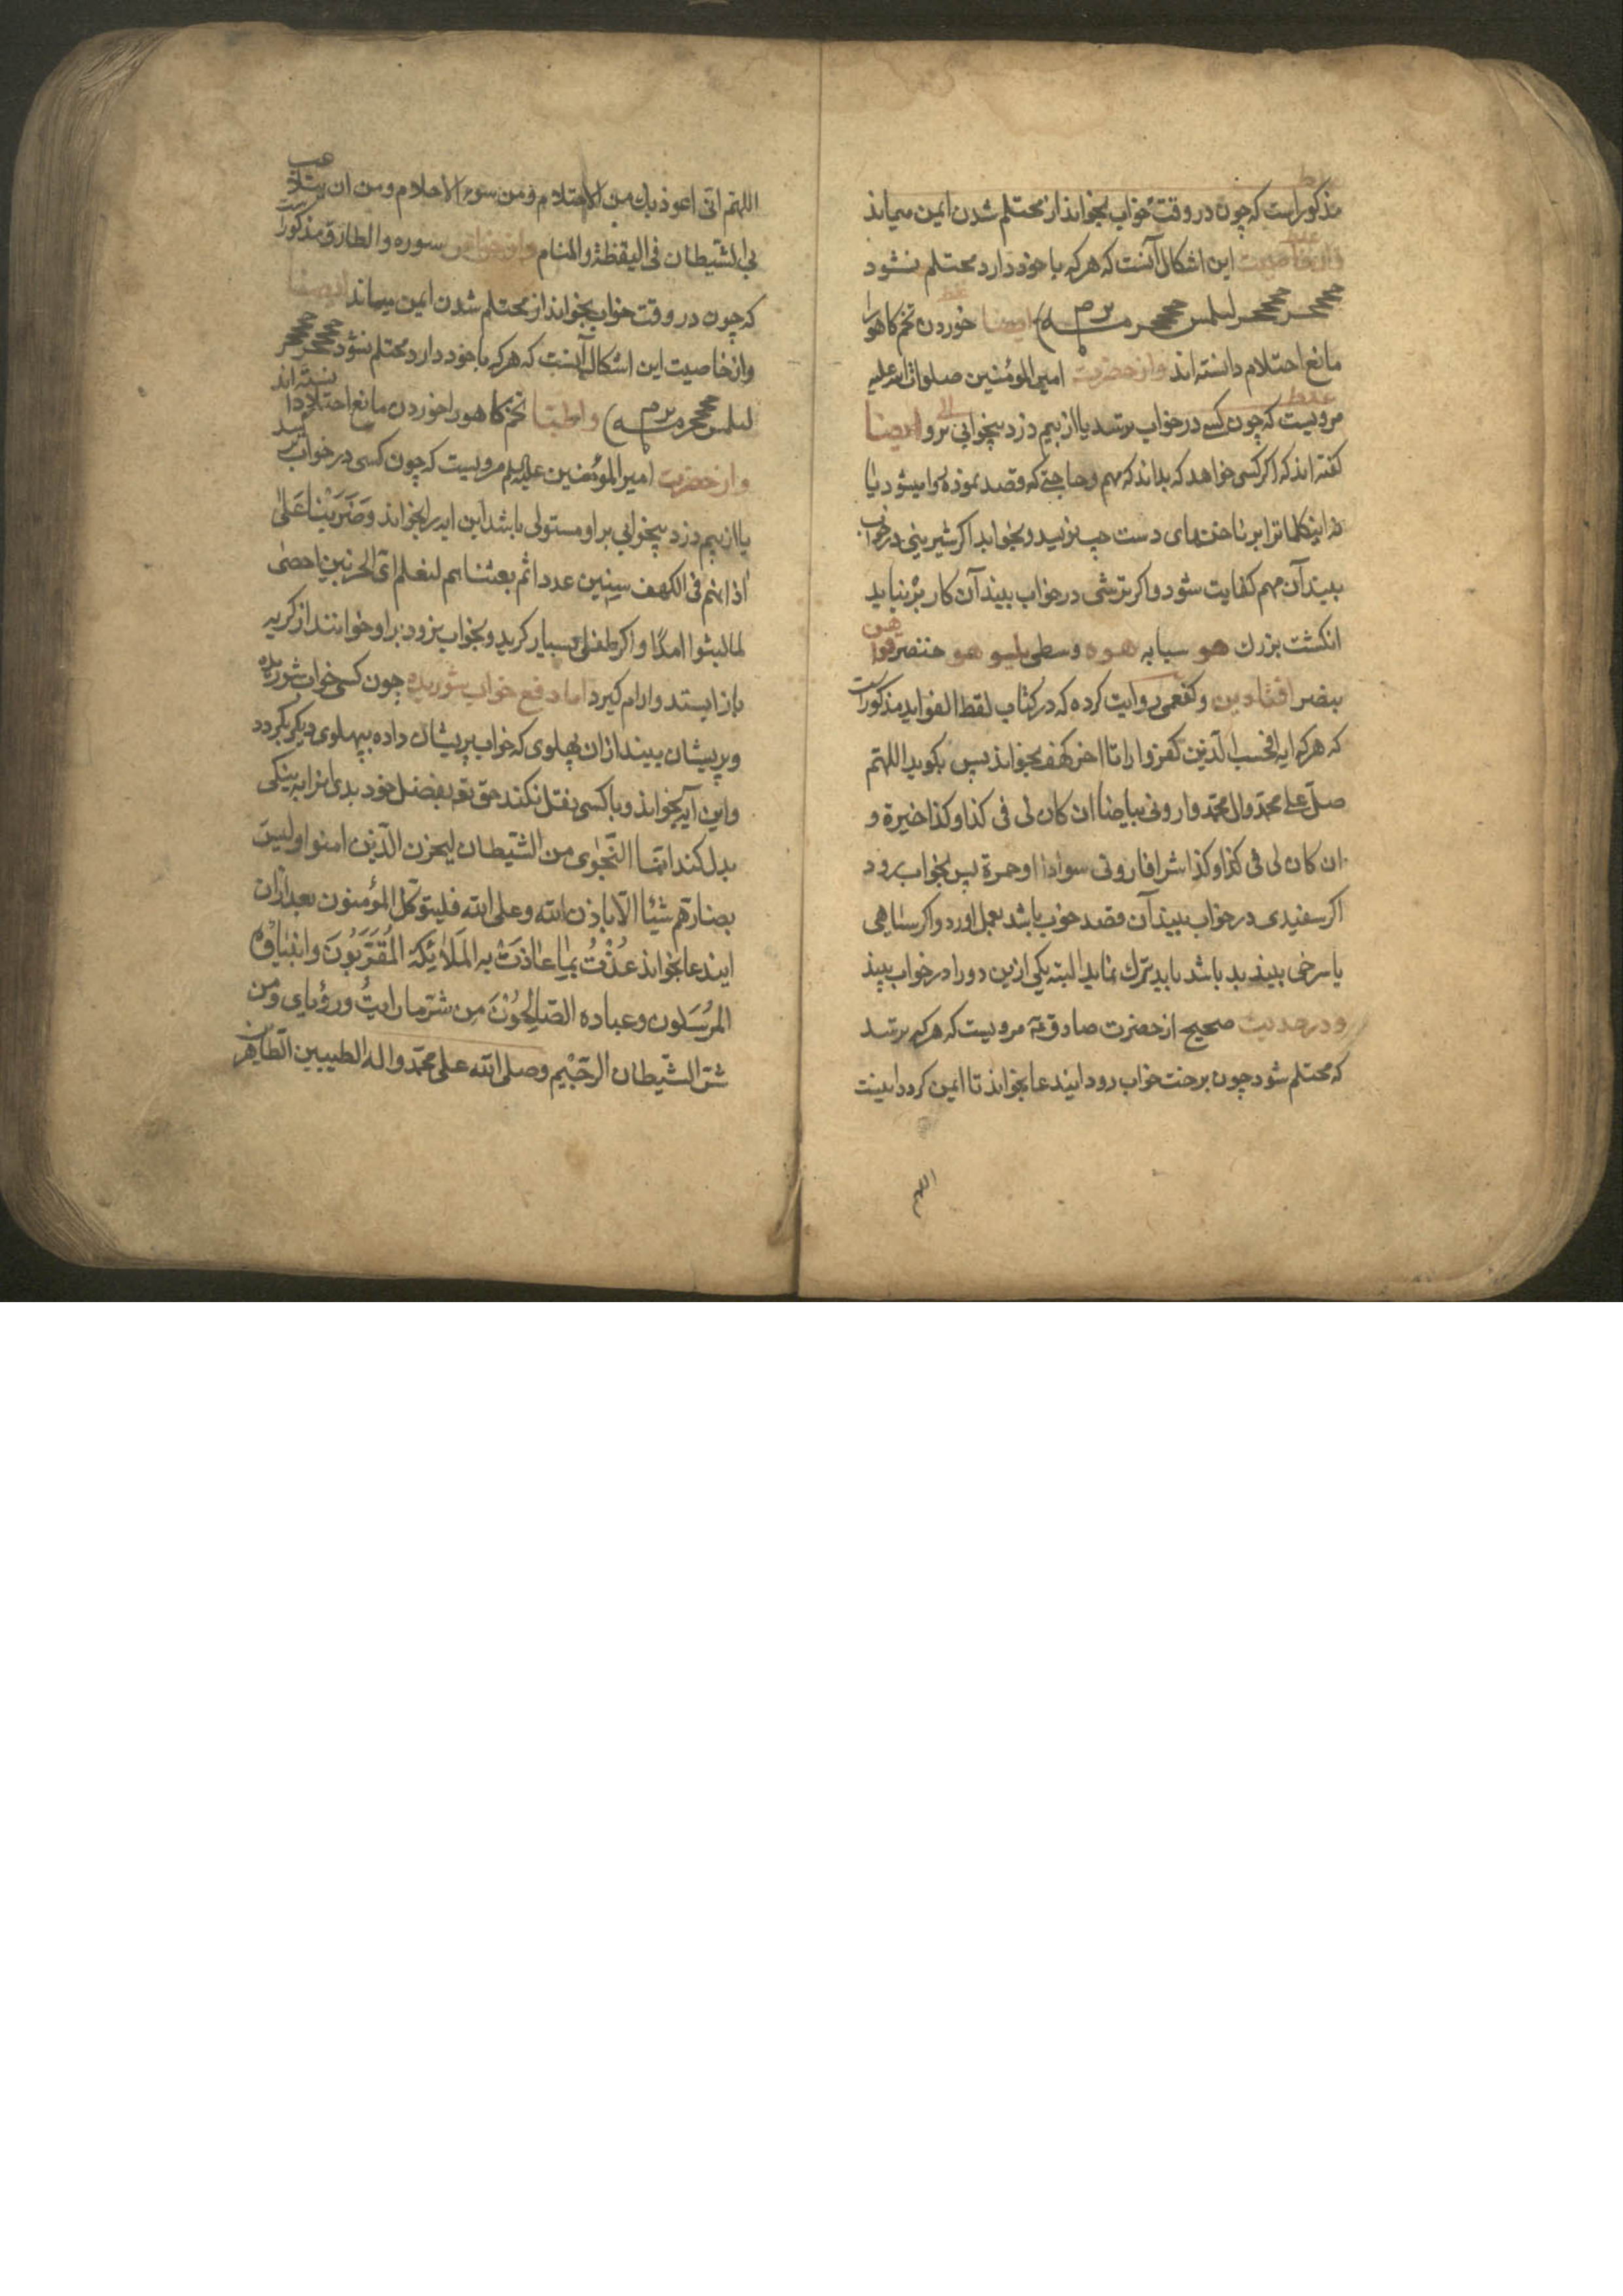 مذکور است که چون در وقت خواب بخواند از محتلم شدن ایمن میماند
غلط
واز خاصیت این اشکال آنست که هر که با خود دارد محتلم نشود
ایضا خوردن تخم کاهو را
مانع احتلام دانسته اند واز حضرت امیر المؤمنین صلوات الله علیه
غلط
مرویست که چون کسی در خواب برتسد یا از بیم دزد بیخوابی برو ایضا
کفته اند که اکر کسی خواهد که بداند که مهم وحاجتی که قصد نموده برا میشود یا
نه اینکلماترا بر ناخنهای دست چپ نویسد وبخوابد اکر شیرینی در خواب
بیند آن مهم کفایت شود واکر ترشی در خواب بیند آن کار بر نیاید
انکشت بزرك هو سبابه هوه وسطی یلیو هو خنصر
بنصر وکفعمی روایت کرده که در کتاب لقط الفواید مذکور است
که هر که ایه افحسب الذین کفروا را تا اخر کهف بخواند پس بکوید اللهم
صل علی محمد وال محمد وارونی بیاضا ان کان لی فی کذا وکذا خیرة و
ان کان لی فی کذا وکذا شرا فارونی سوادا او حمرة پس بخواب رود
اکر سفیدی در خواب بیند آن قصد خوب باشد بعمل اورد واکر سیاهی
یا سرخی بیند بد باشد باید ترك نماید البته یکی ازین دو را در خواب بیند
ودر حدیث صحیح از حضرت صادق ع مرویست که هر که برتسد
که محتلم شود چون برخت خواب رود ایندعا بخواند تا ایمن کردد اینست
اللهم
اللهم انی اعوذ بك من الاحتلام ومن سوء الاحلام ومن ان یتلاعب
بی الشیطان فی الیقظة والمنام واز خواص سوره والطارق مذکور است
که چون در وقت خواب بخواند از محتلم شدن ایمن میماند ایضا
واز خاصیت این اشکال آنست که هر که با خود دارد محتلم نشود
واطبا تخم کاهو را خوردن مانع احتلام دانسته اند
واز حضرت امیر المؤمنین علیه السلم مرویست که چون کسی در خواب ترسد
یا از بیم دزد بیخوابی بر او مستولی باشد این ایه را بخواند وضربنا علی
اذانهم فی الکهف سنین عددا ثم بعثناهم لنعلم ای الحزبین احصی
لما لبثوا امدا واکر طفلی بسیار کرید وبخواب نرود بر او خوانند از کریه
باز ایستد وارام کیرد اما دفع خواب شوریده چون کسی خواب شوریده
وپریشان بیند از ان پهلوی که خواب پریشان داده بپهلوی دیکر بکردد
واین آیه بخواند وبا کسی نقل نکند حق تع بفضل خود بدی انرا به نیکی
بدل کند انما النجوی من الشیطان لیحزن الذین امنوا ولیس
بضارهم شیئا الا باذن الله وعلی الله فلیتوکل المؤمنون بعد ازان
ایندعا بخواند عذت بما عاذت به الملائکة المقربون وانبیاؤه
المرسلون وعباده الصالحون من شر ما رایت ورؤیای ومن
شر الشیطان الرجیم وصلی الله علی محمد واله الطیبین الطاهرین